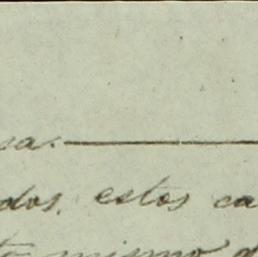 sa.
dos, estos ca
to mismo d